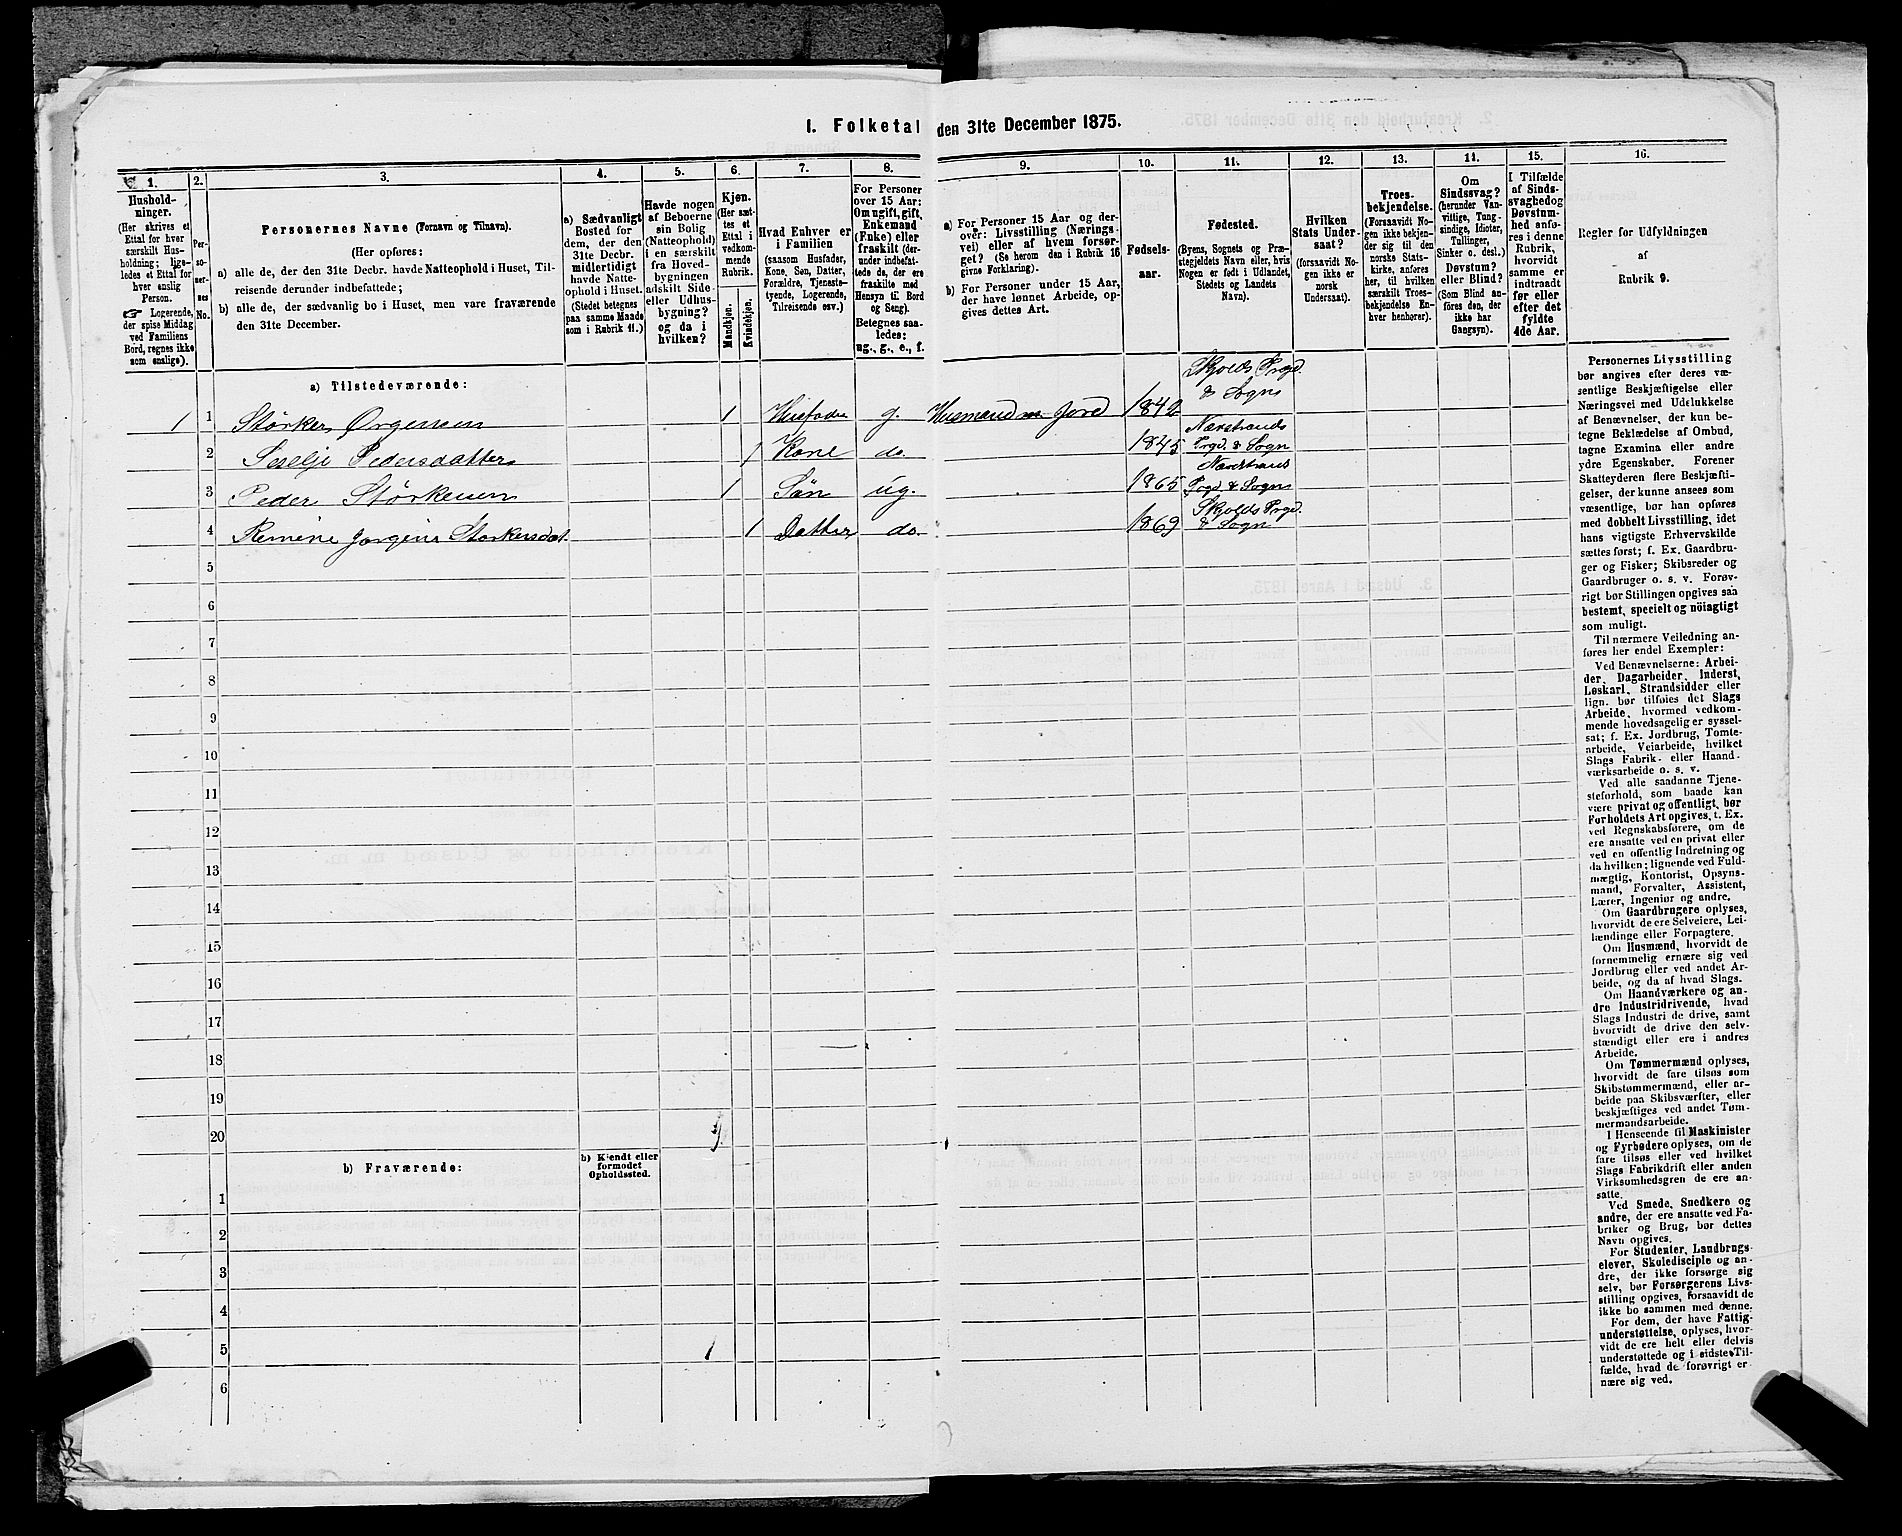 I. Folketal den 31te December 1875.
1. 2. 3. 4. 5. 6. 7. 8. 9. 10. 11. 12. 13. 14. 15. 16.
Hushold-
ninger.
(Her skrives et
Ettal for hver
særskilt Hus-
holdning; lige-
ledes et Ettal for
hver enslig
Person.
☞ Logerende,
der spise Middag
ved Familiens
Bord, regnes ikke
som enslige).
Per-
so-
ner-
nes
No.
Personernes Navne (Fornavn og Tilnavn).
(Her opføres:
a) alle de, der den 31te Decbr. havde Natteophold i Huset, Til-
reisende derunder indbefattede;
b) alle de, der sædvanlig bo i Huset, men vare fraværende
den 31te December.
a) Sædvanligt
Bosted for
dem, der den
31te Decbr.
midlertidigt
havde Natte-
ophold i Huset.
(Stedet betegnes
paa samme Maade
som i Rubrik 11.)
Havde nogen
af Beboerne
sin Bolig
(Natteophold)
i en særskilt
fra Hoved-
bygningen
adskilt Side-
eller Udhus-
bygning?
og da i
hvilken?
Kjøn.
(Her sæt-
tes et
Ettal i
vedkom-
mende
Rubrik.
Mandkjøn.
Kvindekjøn.
Hvad Enhver er
i Familien
(saasom Husfader,
Kone, Søn, Datter,
Forældre, Tjeneste-
tyende, Logerende,
Tilreisende osv.)
For Personer
over 15 Aar:
Om ugift, gift,
Enkemand
(Enke) eller
fraskilt (der-
under indbefat-
tede de, der ere
fraskilte med
Hensyn til Bord
og Seng).
Betegnes saa-
ledes:
ug., g., e., f.
a) For Personer 15 Aar og der-
over: Livsstilling (Nærings-
vei) eller af hvem forsør-
get? (Se herom den i Rubrik 16
givne Forklaring).
b) For Personer under 15 Aar,
der have lønnet Arbeide, op-
gives dettes Art.
Fødsels-
aar.
Fødested.
(Byens, Sognets og Præ-
stegjeldets Navn eller, hvis
Nogen er født i Udlandet,
Stedets og Landets
Navn).
Hvilken
Stats Under-
saat?
(forsaavidt No-
gen ikke er
norsk
Undersaat).
Troes-
bekjendelse.
(Forsaavidt No-
gen ikke bekjen-
der sig til den
norske Stats-
kirke, anføres
her, til hvilken
særskilt Troes-
bekjendelse En-
hver henhører).
Om
Sindssvag?
(herunder Van-
vittige, Tung-
sindige, Idioter,
Tullinger,
Sinker o. desl.)
Døvstum?
eller Blind?
(Som Blind an-
føres den, der
ikke har
Gangsyn).
I Tilfælde
af Sinds-
svaghed og
Døvstum-
hed anfø-
res i denne
Rubrik,
hvorvidt
samme er
indtraadt
før eller
efter det
fyldte
4de Aar.
Regler for Udfyldningen
af
Rubrik 9.
a) Tilstedeværende:
1 1 Størker Ørgensen 1 Husfader g. Husmand m Jord 1842 Skjolds Prgd. & Sogn
2 Serelje Pedersdatter 1 Kone do. 1845 Nærstrands Prgd. & Sogn
3 Peder Størkersen 1 Søn ug. 1865 Nærstrands Prgd & Sogns
4 Remine Jørgine Størkersdat. 1 Datter do. 1869 Skjolds Prgd. & Sogn
5
6
7
8
9
10
11
12
13
14
15
16
17
18
19
20
b) Fraværende:
b) Kjendt eller
formodet
Opholdssted.
1
2
3
4
5
6
Personernes Livsstilling
bør angives efter deres væ-
sentlige Beskjæftigelse eller
Næringsvei med Udelukkelse
af Benævnelser, der kun be-
tegne Beklædelse af Ombud,
tagne Examina eller andre
ydre Egenskaber. Forener
Skatteyderen flere Beskjæfti-
gelser, der kunne ansees som
væsentlige, bør han opføres
med dobbelt Livsstilling, idet
hans vigtigste Erhvervskilde
sættes først; f. Ex. Gaardbru-
ger og Fisker; Skibsreder og
Gaardbruger o. s. v. Forøv-
rigt bør Stillingen opgives saa
bestemt, specielt og nöiagtigt
som muligt.
Til nærmere Veiledning an-
føres her endel Exempler:
Ved Benævnelserne: Arbei-
der, Dagarbeider, Inderst,
Løskarl, Strandsidder eller
lign. bør tilføies det Slags
Arbeide, hvormed vedkom-
mende hovedsagelig er syssel-
sat; f. Ex. Jordbrug, Tomte-
arbeide, Veiarbeide, hvilket
Slags Fabrik- eller Haand-
værksarbeide o. s. v.
Ved alle saadanne Tjene-
steforhold, som baade kan
være privat og offentligt, bør
Forholdets Art opgives, t. Ex.
ved Regnskabsførere, om de
ere ansatte ved en privat eller
ved en offentlig Indretning og
da hvilken; lignende ved Fuld-
mægtig, Kontorist, Opsyns-
mand, Forvalter, Assistent,
Lærer, Ingeniør og andre.
Om Gaardbrugere oplyses,
hvorvidt de ere Selveiere, Lei-
lændinge eller Forpagtere.
Om Husmænd, hvorvidt de
fornemmelig ernære sig ved
Jordbrug eller ved andet Ar-
beide, og da af hvad Slags.
Om Haandværkere og an-
dre Industridrivende, hvad
Slags Industri de drive, samt
hvorvidt de drive den selv-
stændigt eller ere i andres
Arbeide.
Om Tømmermænd oplyses,
hvorvidt de fare tilsøs som
Skibstømmermænd, eller ar-
beide paa Skibsværfter, eller
beskjæftiges ved andet Tøm-
mermandsarbeide.
I Henseende til Maskinister
og Fyrbødere oplyses, om de
fare tilsøs eller ved hvilket
Slags Fabrikdrift eller anden
Virksomhedsgren de ere an-
satte.
Ved Smede, Snedkere og
andre, der ere ansatte ved Fa-
briker og Brug, bør dettes
Navn opgives.
For Studenter, Landbrugs-
elever, Skoledisciple og an-
dre, der ikke forsørge sig
selv, bør Forsørgerens Livs-
stilling opgives, forsaavidt de
ikke bo sammen med denne.
For dem, der have Fattig-
understøttelse, oplyses, hvor-
vidt de ere helt eller delvis
understøttede og i sidste Til-
fælde, hvad de forøvrigt er
nære sig ved.